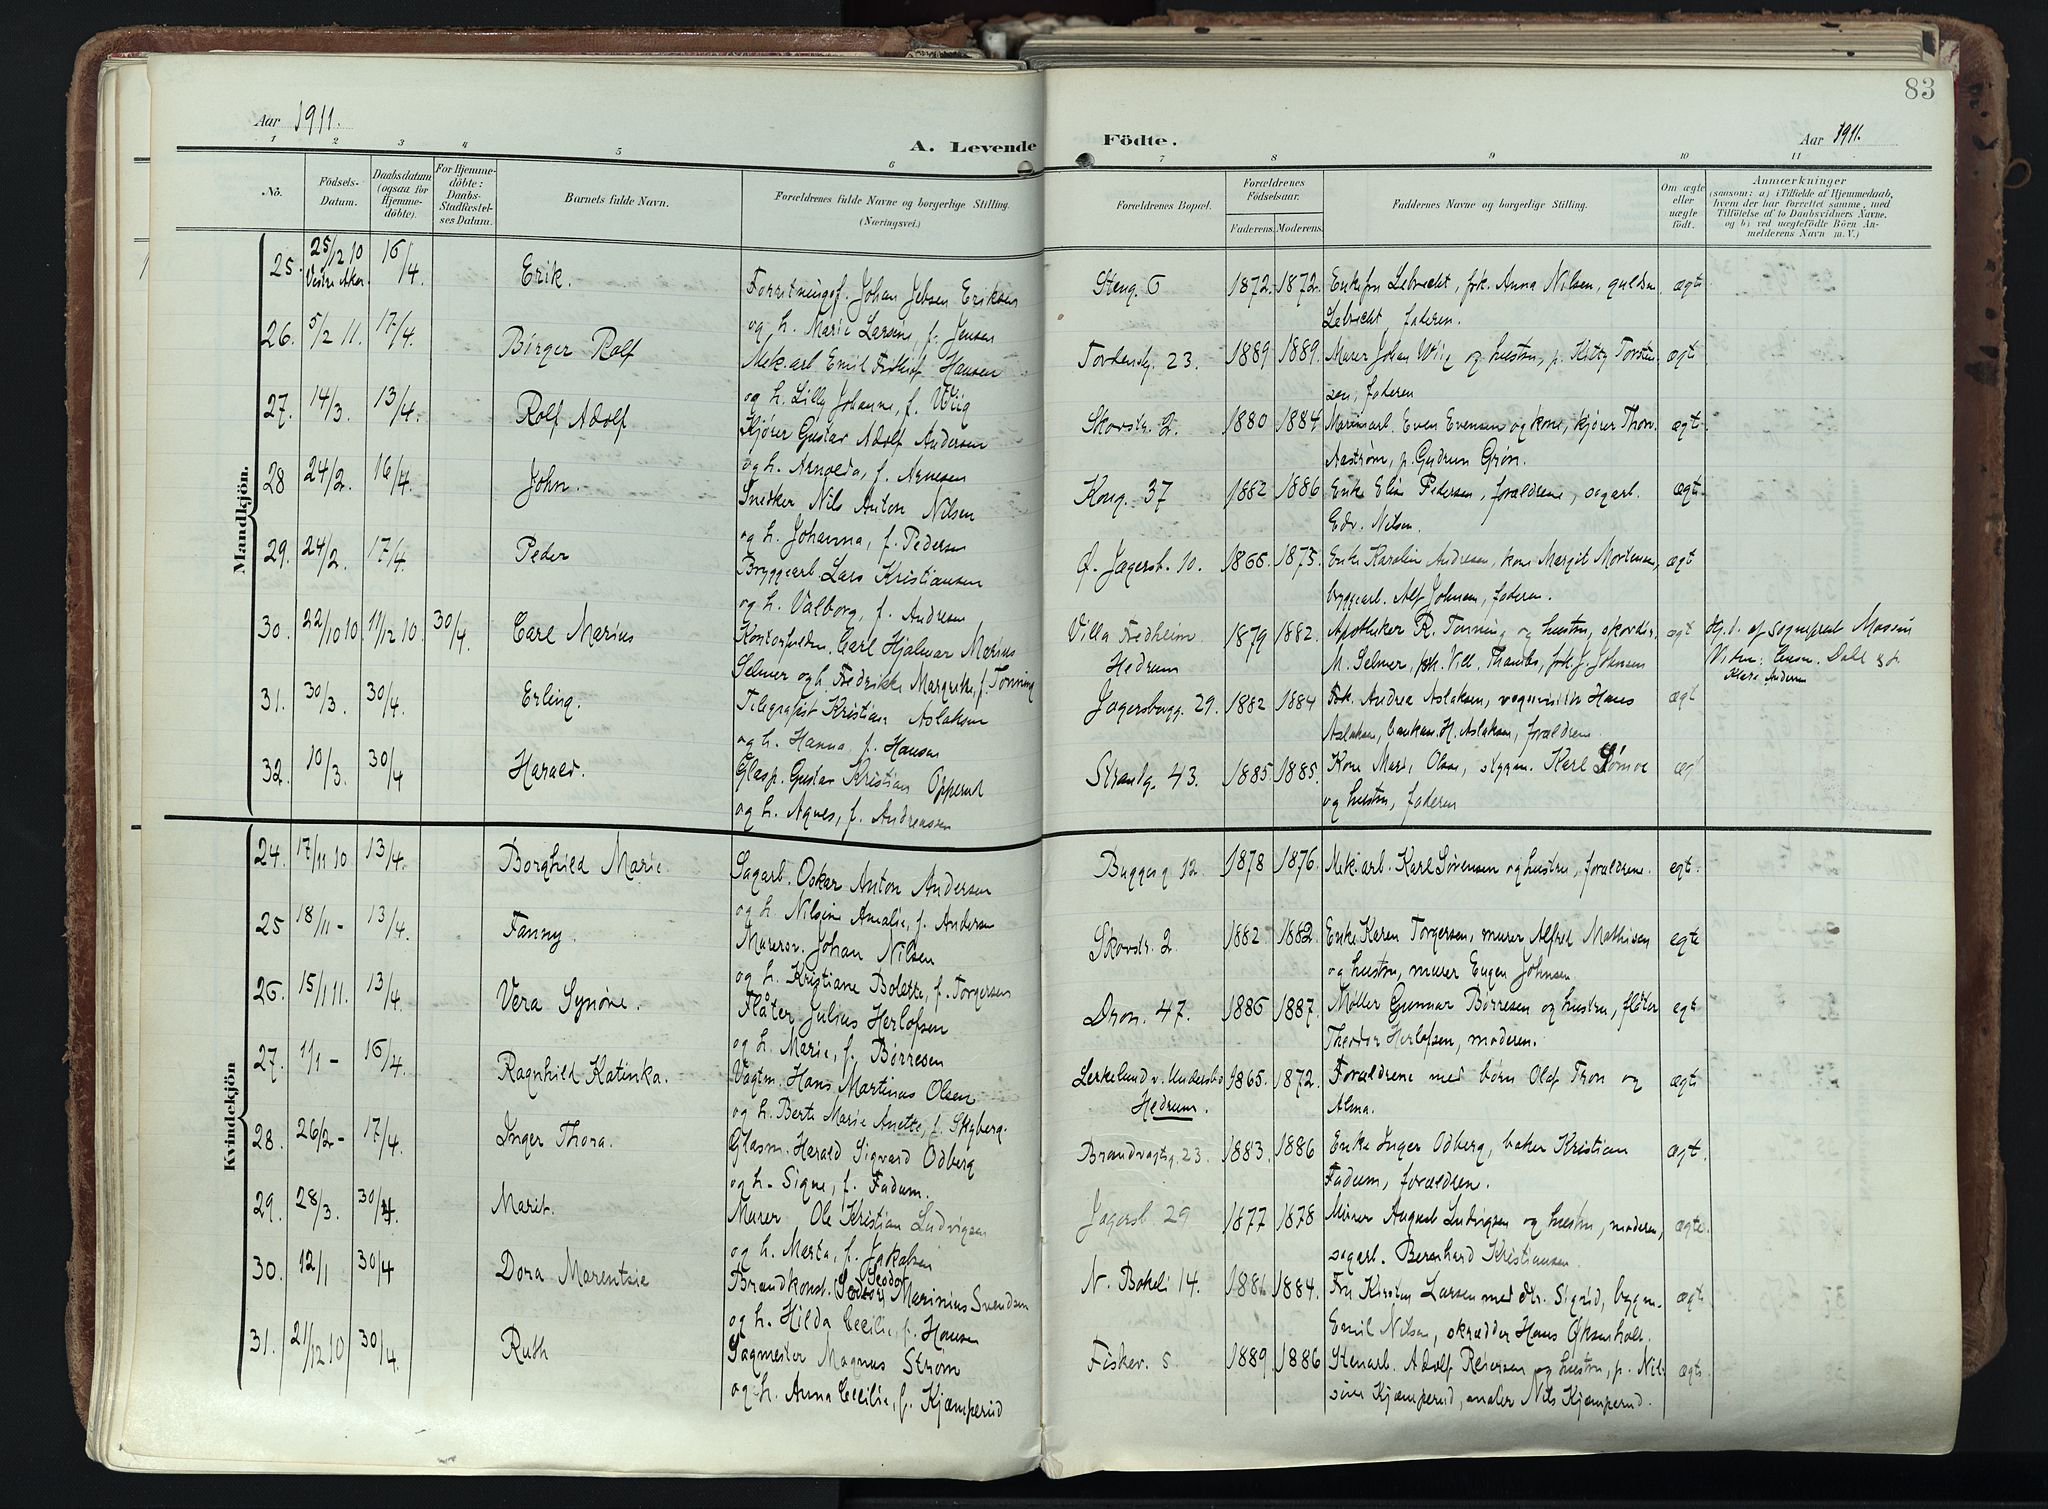 83
Aar 1911.
A. Levende Födte.
Aar 1911.
1 2 3 4 5 6 7 8 9 10 11
No. Födsels-Datum. Daabsdatum (ogsaa for Hjemme-döbte). For Hjemme-döbte: Daabs-Stadfæstel-ses Datum. Barnets fulde Navn. Forældrenes fulde Navne og borgerlige Stilling. (Næringsvei.)
Forældrenes Bopæl. Forældrenes Födselsaar. Faderens. Moderens. Faddernes Navne og borgerlige Stilling. Om ægte eller uægte födt.
Anmærkninger
(saasom: a) i Tilfælde af Hjemmedaab,
hvem der har forrettet samme, med
Tilföielse af to Daabsvidners Navne,
og b) ved uægtefödte Börn An-
melderens Navn m. V.)
Mandkjön.
25. 25/2 10 Vestre Aker 16/4 Erik. Forretningsf. Johan Jebsen Eriksen
og h. Marie Larsine, f. Jensen
Steng. 6 1872. 1872. Enkefru Lebrecht, frk. Anna Nilsen, guldsm.
Lebrecht, faderen. ægte
26. 5/2 11. 17/4. Birger Rolf Mek.arb. Emil Fridthjof Hansen
og h. Lilly Johanne, f. Wiig
Tordenskj. 23. 1889 1889. Murer Johan Wiig og hustru, p. Kitty Torsten-
sen, faderen ægte
27. 14/3. 13/4. Rolf Adolf Kjører Gustav Adolf Andersen
og h. Arnolda, f. Arnesen
Skovstr. 2. 1880 1884 Marinearb. Even Evensen og kone, kjører Thom.
Aastrøm, p. Gudrun Grøn. ægte
28 24/2. 16/4. John. Snekker Nils Anton Nilsen
og h. Johanna, f. Pedersen
Kong. 37 1882 1886 Enke Elise Pedersen, forældrene, sagarb.
Edv. Nilsen. ægte
29. 24/2. 17/4. Peder Bryggearb. Lars Kristiansen
og h. Valborg, f. Andresen
Ø. Jægersb. 10. 1865. 1875. Enke Karoline Andresen, kone Margit Mortensen,
bryggearb. Alf Johnsen, faderen. ægt
30. 22/10 10 11/12 10. 30/4. Carl Marius Kontorfuldm. Carl Hjalmar Marius
Selmer og h. Fredrikke Margrethe, f. Tønning
Villa Fredheim
Hedrum 1879 1882. Apotheker R. Tønning og hustru, skovdir.
M. Selmer, frk. Vill. Thambs, frk. J. Johnsen ægt
Hj.d. af sogneprest Massin
31. 30/3. 30/4. Erling. Telegrafist Kristian Aslaksen
og h. Hanna, f. Hansen
Jægersbogg. 29. 1882 1884 Frk. Andrea Aslaksen, Hans
Aslaksen, H. Aslaksen, forældrene. ægt
32. 10/3. 30/4 Harald. Glasp. Gustav Kristian Opperud
og h. Agnes, f. Andreassen
Strandg. 43. 1885 1885. Kone Marie Olsen, styrm. Karl
og hustru, faderen ægt
Kvindekjön
24. 17/11 10 13/4. Borghild Marie Sagarb. Oskar Anton Andersen
og h. Nilsine Amalie, f. Andersen
Buggesg 12. 1878 1876. Mek.arb. Karl Sørensen og hustru, forældrene. egt.
25 18/11 - 13/4. Fanny. Murersv. Johan Nilsen
og h. Kristiane Bolette, f. Torgersen
Skovstr. 2 1882 1882. Enke Karen Torgersen, murer Alfred Mathisen
og hustru, murer Eugen Johnsen. egte
26. 15/1 11. 13/4. Vera Synøve. Fløter Julius Herlofsen
og h. Marie, f. Børresen
Dron. 47. 1886 1887. Møller Gunnar Børresen og hustru, fløter
Theodor Herlofsen, moderen. egt
27. 1/1 - 16/4. Ragnhild Katinka. Vagtm. Hans Martinus Olsen
og h. Berte Marie Anette, f. Skyberg.
Lerkelund v. Undersbo
Hedrum. 1865. 1872. Forældrene med børn Olaf Tron og
Alma. ægte
28. 26/2 - 17/4. Inger Thora. Glasm. Harald Sigvard Odberg
og h. Signe, f. Fadum.
Brandvagtsg. 23. 1883. 1886 Enke Inger Odberg, baker Kristian
Fadum, forældrene. ægt.
29. 28/3. 30/4. Marit. Murer Ole Kristian Ludvigsen
og h. Marta, f. Jakobsen
Jægersb. 29 1877 1878 Murer August Ludvigsen og hustru, moderen,
sagarb. Bernhard Kristiansen. ægte.
30. 12/1 30/4 Dora Marentsie Brandkonst. Teodor Marinius Svendsen
og h. Hilda Cecilie, f. Hansen
N. Bøkeli 14. 1881 1884. Fru Kirsten Larsen med dtr. Sigrid, bygm.
Emil Nilsen, skrædder Hans Oksenholt. ægte
31. 21/12 10 30/4. Ruth Sagmester Magnus Strøm
og h. Anna Cecilie, f. Kjæmperud
Fisker. 5. 1889 1886 Stenarb. Adolf Reiersen og hustru, p. Nil-
sine Kjæmperud, maler Nils Kjæmperud. ægte